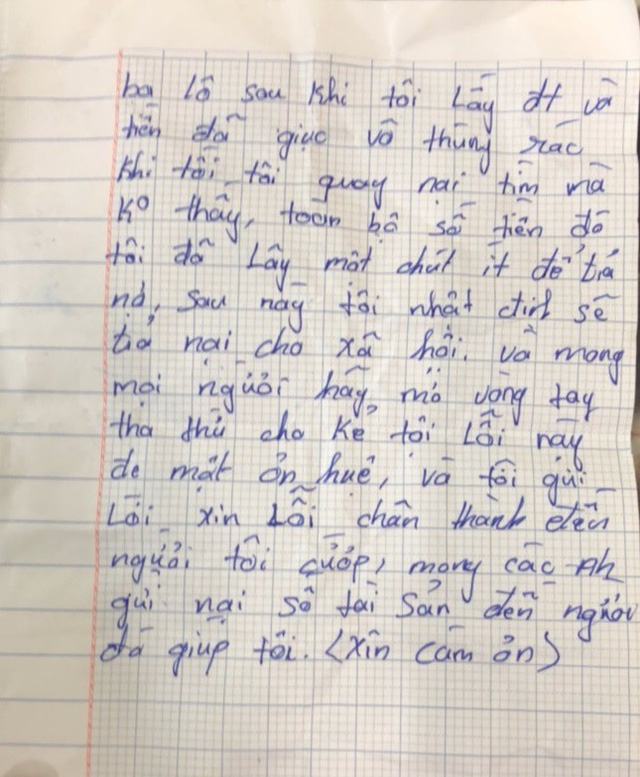 ba lô sau khi tôi Lấy đt và
tiền đã giục vô thùng rác
khi tôi tôi quay nai tìm mà
Ko thấy, toàn bộ số tiền đó
tôi đã Lấy một chút ít để tiả
nợ, sau này tôi nhất địnl sẽ
tiả nai cho xã hội. và mong
mọi người hãy mở vòng tay
tha thứ cho kẻ tội Lỗi này
de mắt ơn huệ, và tôi gửi
Lời xin Lỗi chân thành đến
người tôi cướp, mong các Ah
gửi nai số tài Sản đến người
đã giúp tôi. <xin cảm ơn>